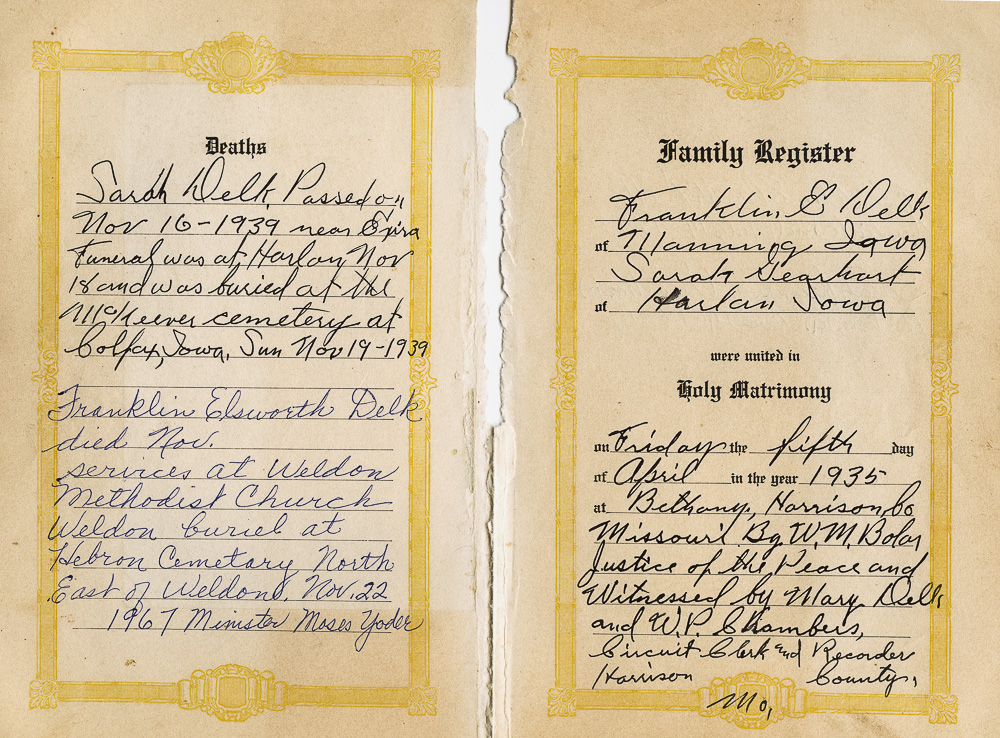 Deaths
Sarah Delk, Passed on
Nov 16-1939 near Exira
Funeral was at Harlan Nov
18 and was buried at the
McKeever cemetery at
Colfax, Iowa, Sun Nov 19-1939
Franklin Elsworth Delk
died Nov.
services at Weldon
Methodist Church
Weldon buriel at
Hebron Cemetary North
East of Weldon. Nov. 22
1967 Minister Moses Yoder
Family Register
Franklin E Delk
of Manning Iowa
Sarah Gearhart
of Harlan Iowa
were united in
Holy Matrimony
on Friday the fifth day
of April in the year 1935
at Bethany, Harrison, Co
Missouri By W. M. Bolar
Justice of the Peace and
Witnessed by Mary Delk
and W. P. Chambers,
Circuit Clerk and Recorder
Harrison County,
Mo,